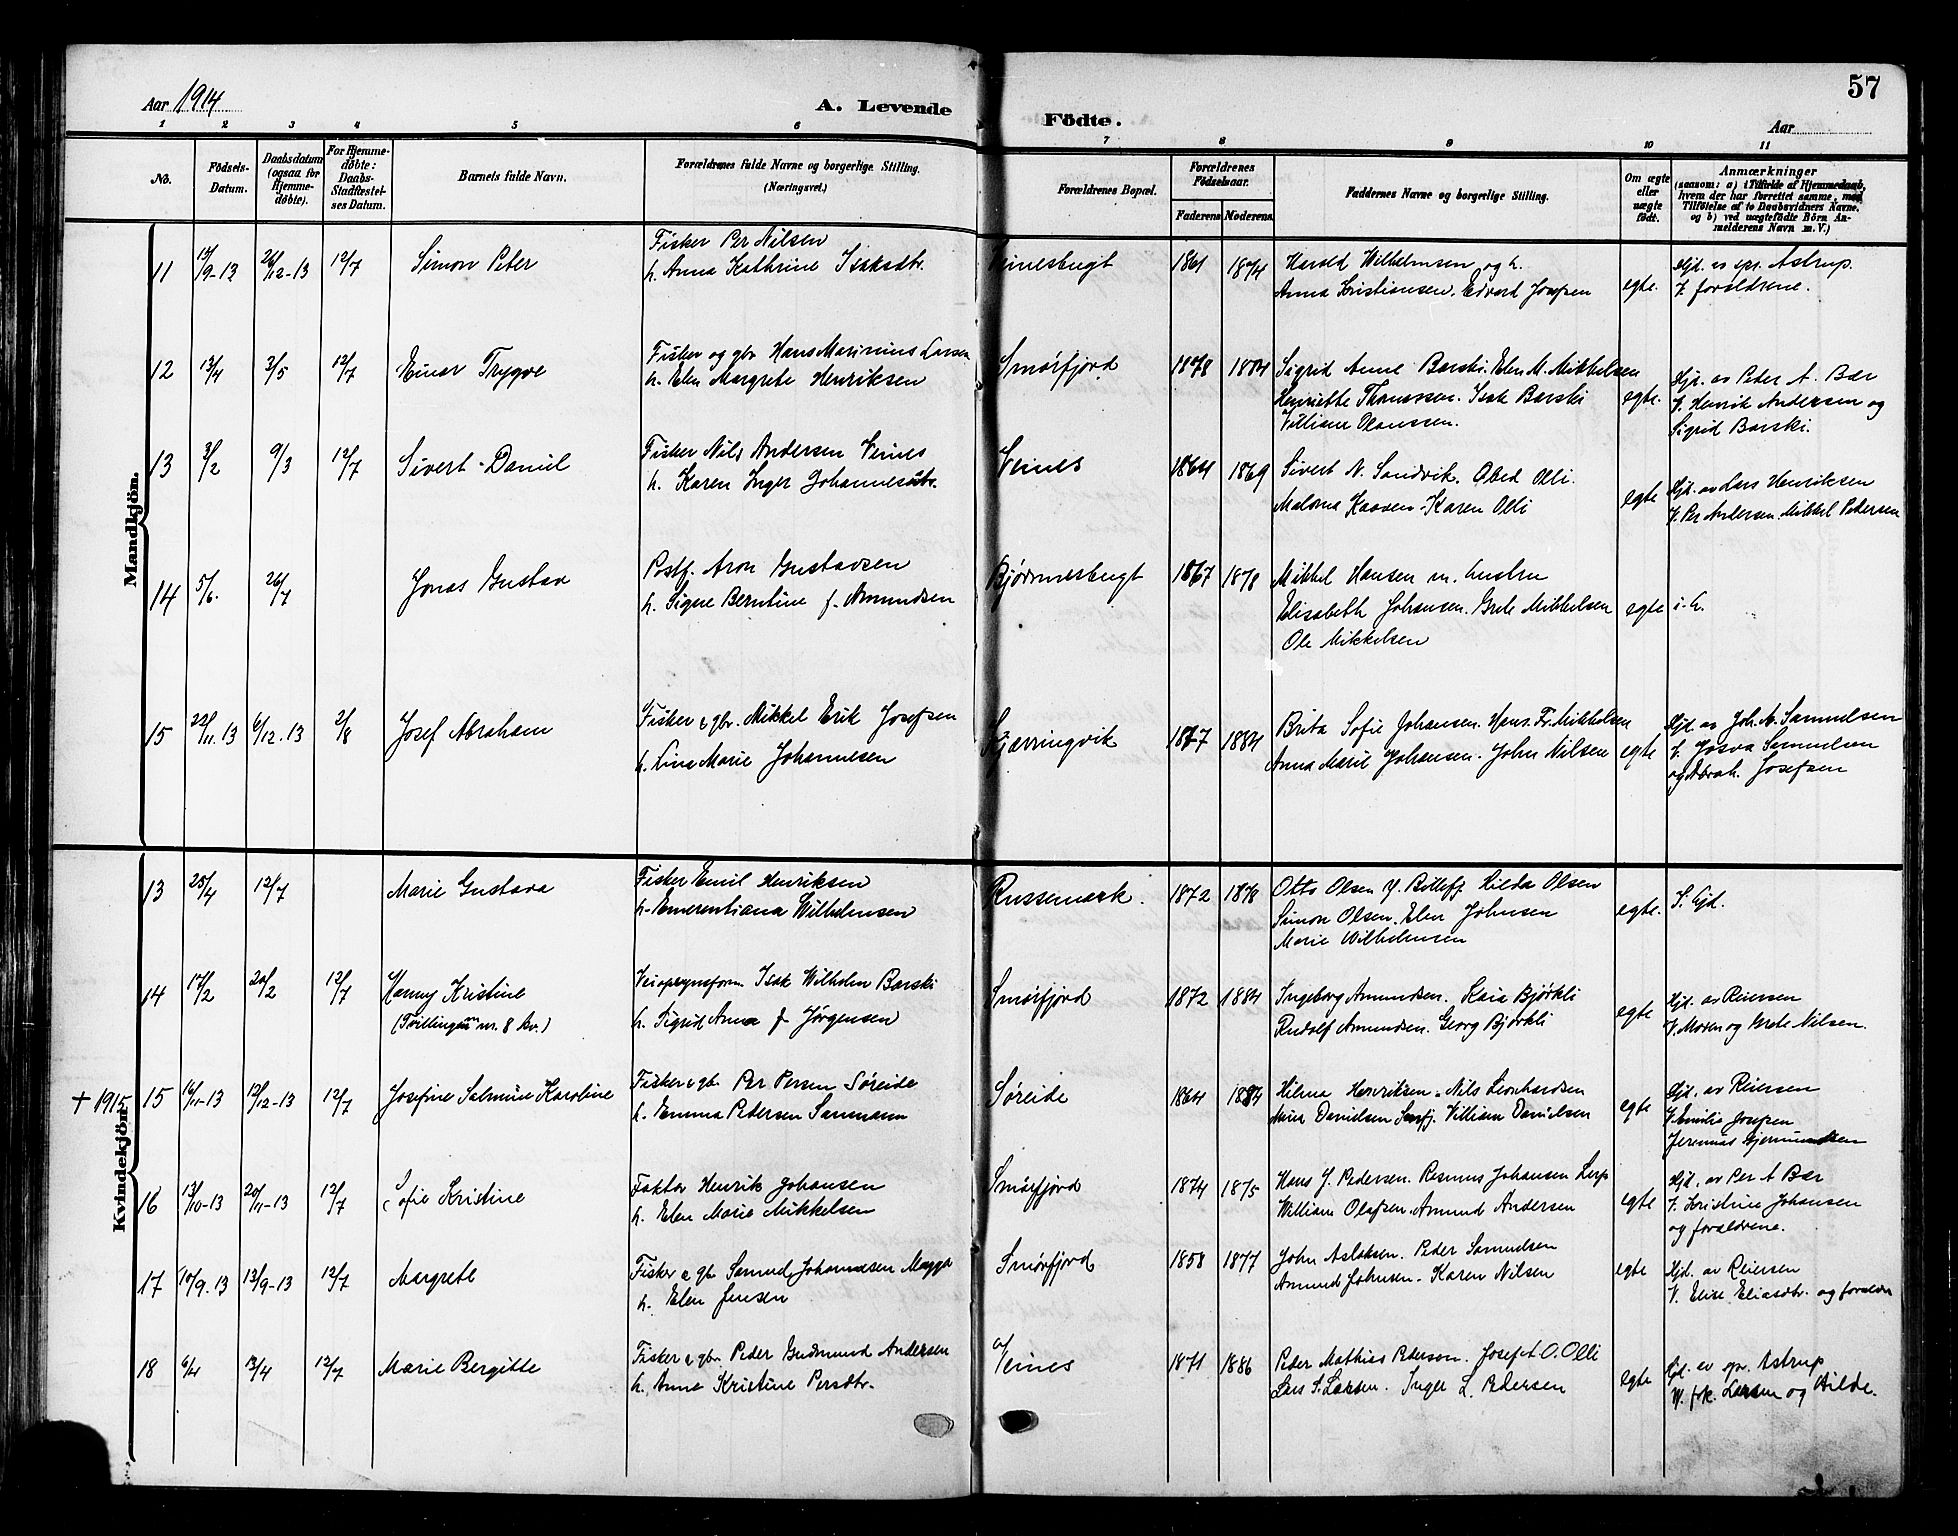 57
Aar 1914
A. Levende
Födte.
Aar
1 2 3 4 5 6 7 8 9 10 11
No.
Födsels-Datum.
Daabsdatum (ogsaa for Hjemme-døbte).
For Hjemme-døbte: Daabs-Stadfæstel-ses Datum.
Barnets fulde Navn.
Forældrenes fulde Navne og borgerlige Stilling. (Næringsvei.)
Forældrenes Bopæl.
Forældrenes Fødselsaar.
Faderens Moderens
Faddernes Navne og borgerlige Stilling.
Om ægte eller uægte født.
Anmærkninger
(saasom: a) i Tilfælde af Hjemmedaab, hvem der har forrettet samme, med Tilføielse af to Daabsvidners Navne, og b) ved uægtefødte Börn An-melderens Navn m. V.)
Mandkjön.
11 9-13 26/12-13 12/7 Simon Peter
Fisker Per Nilsen
h. Anna Kathrine Isaksdtr.
Veinesbugt 1861 1874
Harald Wilhelmsen og h.
Anna Kristiansen. Edvard Josefsen
egte.
Hjd. av spr. Astrup.
V. foreldrene.
12 13/4 3/5 12/7 Einar Trygve
Fisker og gbr Hans Marinius Larsen
h. Elen Margrete Henriksen
Smørfjord 1878 1884
Sigrid Anne Barski. Elen M. Mikkelsen
Henriette Thomassen. Isak Barski
William Olaussen.
egte.
Hjd. av Peter A. Bær
V. Henrik Andersen og
Sigrid Barski.
13 3/2 9/3 12/7 Sivert Daniel
Fisker Nils Andersen Veines
h. Karen Inger Johannesdtr.
Veines 1864 1869
Sivert N. Sandvik. Obed Olli.
Malena Kaaven. Karen Olli
egte
Hjd. av Lars Henriksen
V. Per Andersen. Mikkel Pedersen
14 5/6. 26/7 Jonas Gustav
Postf. Aron Gustavsen
h. Signe Berntine f. Amundsen
Bjørnnesbugt 1867 1878
Mikkel Hansen m. hustru
Elisabeth Johansen. Grete Mikkelsen
Ole Mikkelsen
egte i. h.
15 22/11.13 6/12.13 2/8 Josef Abraham
Fisker & gbr. Mikkel Erik Josefsen
h. Lina Marie Johannesen
Kjærringvik 1877 1884
Brita Sofie Johansen. Hans Fr. Mikkelsen
Anna Marie Johansen. John Nilsen
egte
Hjd. av Joh. A. Samuelsen
V. Josva Samuelsen
og Abrah. Josefsen
Kvindekjön.
13 25/4 12/7 Marie Gustava
Fisker Emil Henriksen
h. Emerentiana Wilhelmsen
Russemark. 1872 1876
Otto Olsen Hilda Olsen
Simon Olsen. Elen Johnsen
Marie Wilhelmsen
egte.
14 17/2 20/2 12/7 Hanny Kristine
(Tvillinger m nr. 8 kv.)
Veiopsynsform. Isak Wilhelm Barski
h. Sigrid Anna f. Jørgensen
Smørfjord 1872 1884
Ingeborg Amundsen. Kaia Bjørkli
Rudolf Amundsen. Georg Bjørkli
egte
Hjd. av Reiersen
V. Moren og Grete Nilsen.
+ 1915 15 16/11-13 13/12-13 12/7 Josefine Salmine Karoline
Fisker & gbr. Per Persen Søreide
h. Emma Pedersen Sanmann
Søreide 1864 1884
Hilma Henriksen. Nils Leonhardsen
Marie Danielsen William Danielsen
egte
Hjd. av Reiersen
V. Emilie Josefsen
Jeremias Gjermundsen
16 13/10-13 20/11-13 12/7 Sofie Kristine
Faktor Henrik Johansen
h. Elen Marie Mikkelsen
Smørfjord 1874 1875
Hans J. Pedersen. Rasmus Johansen
William Olafsen. Amund Andersen
egte
Hjd. av Per A Bær
V. Kristine Johansen
og foreldrene.
17 10/9.13 13/9-13 12/7 Margrete
Fisker & gbr Samuel Johannesen Magga
h. Elen Jensen
Smørfjord 1858 1877
John Aslaksen. Peder Samuelsen
Amund Johnsen. Karen Nilsen
egte
Hjd. av Reiersen
V. Elise Eliasdtr. og foreldr
18 6/4 13/4 12/7 Marie Bergitte
Fisker & gbr Peder Gudmund Andersen
h. Anna Kristine Persdtr.
af
Veines 1871 1886
Peder Mathias Pederson. Josef A. O. Olli
Lars S. Larsen. Inger L. Pedersen
egte
Hjd. av spr. Astrup
V. frk. Larsen og Hilde.